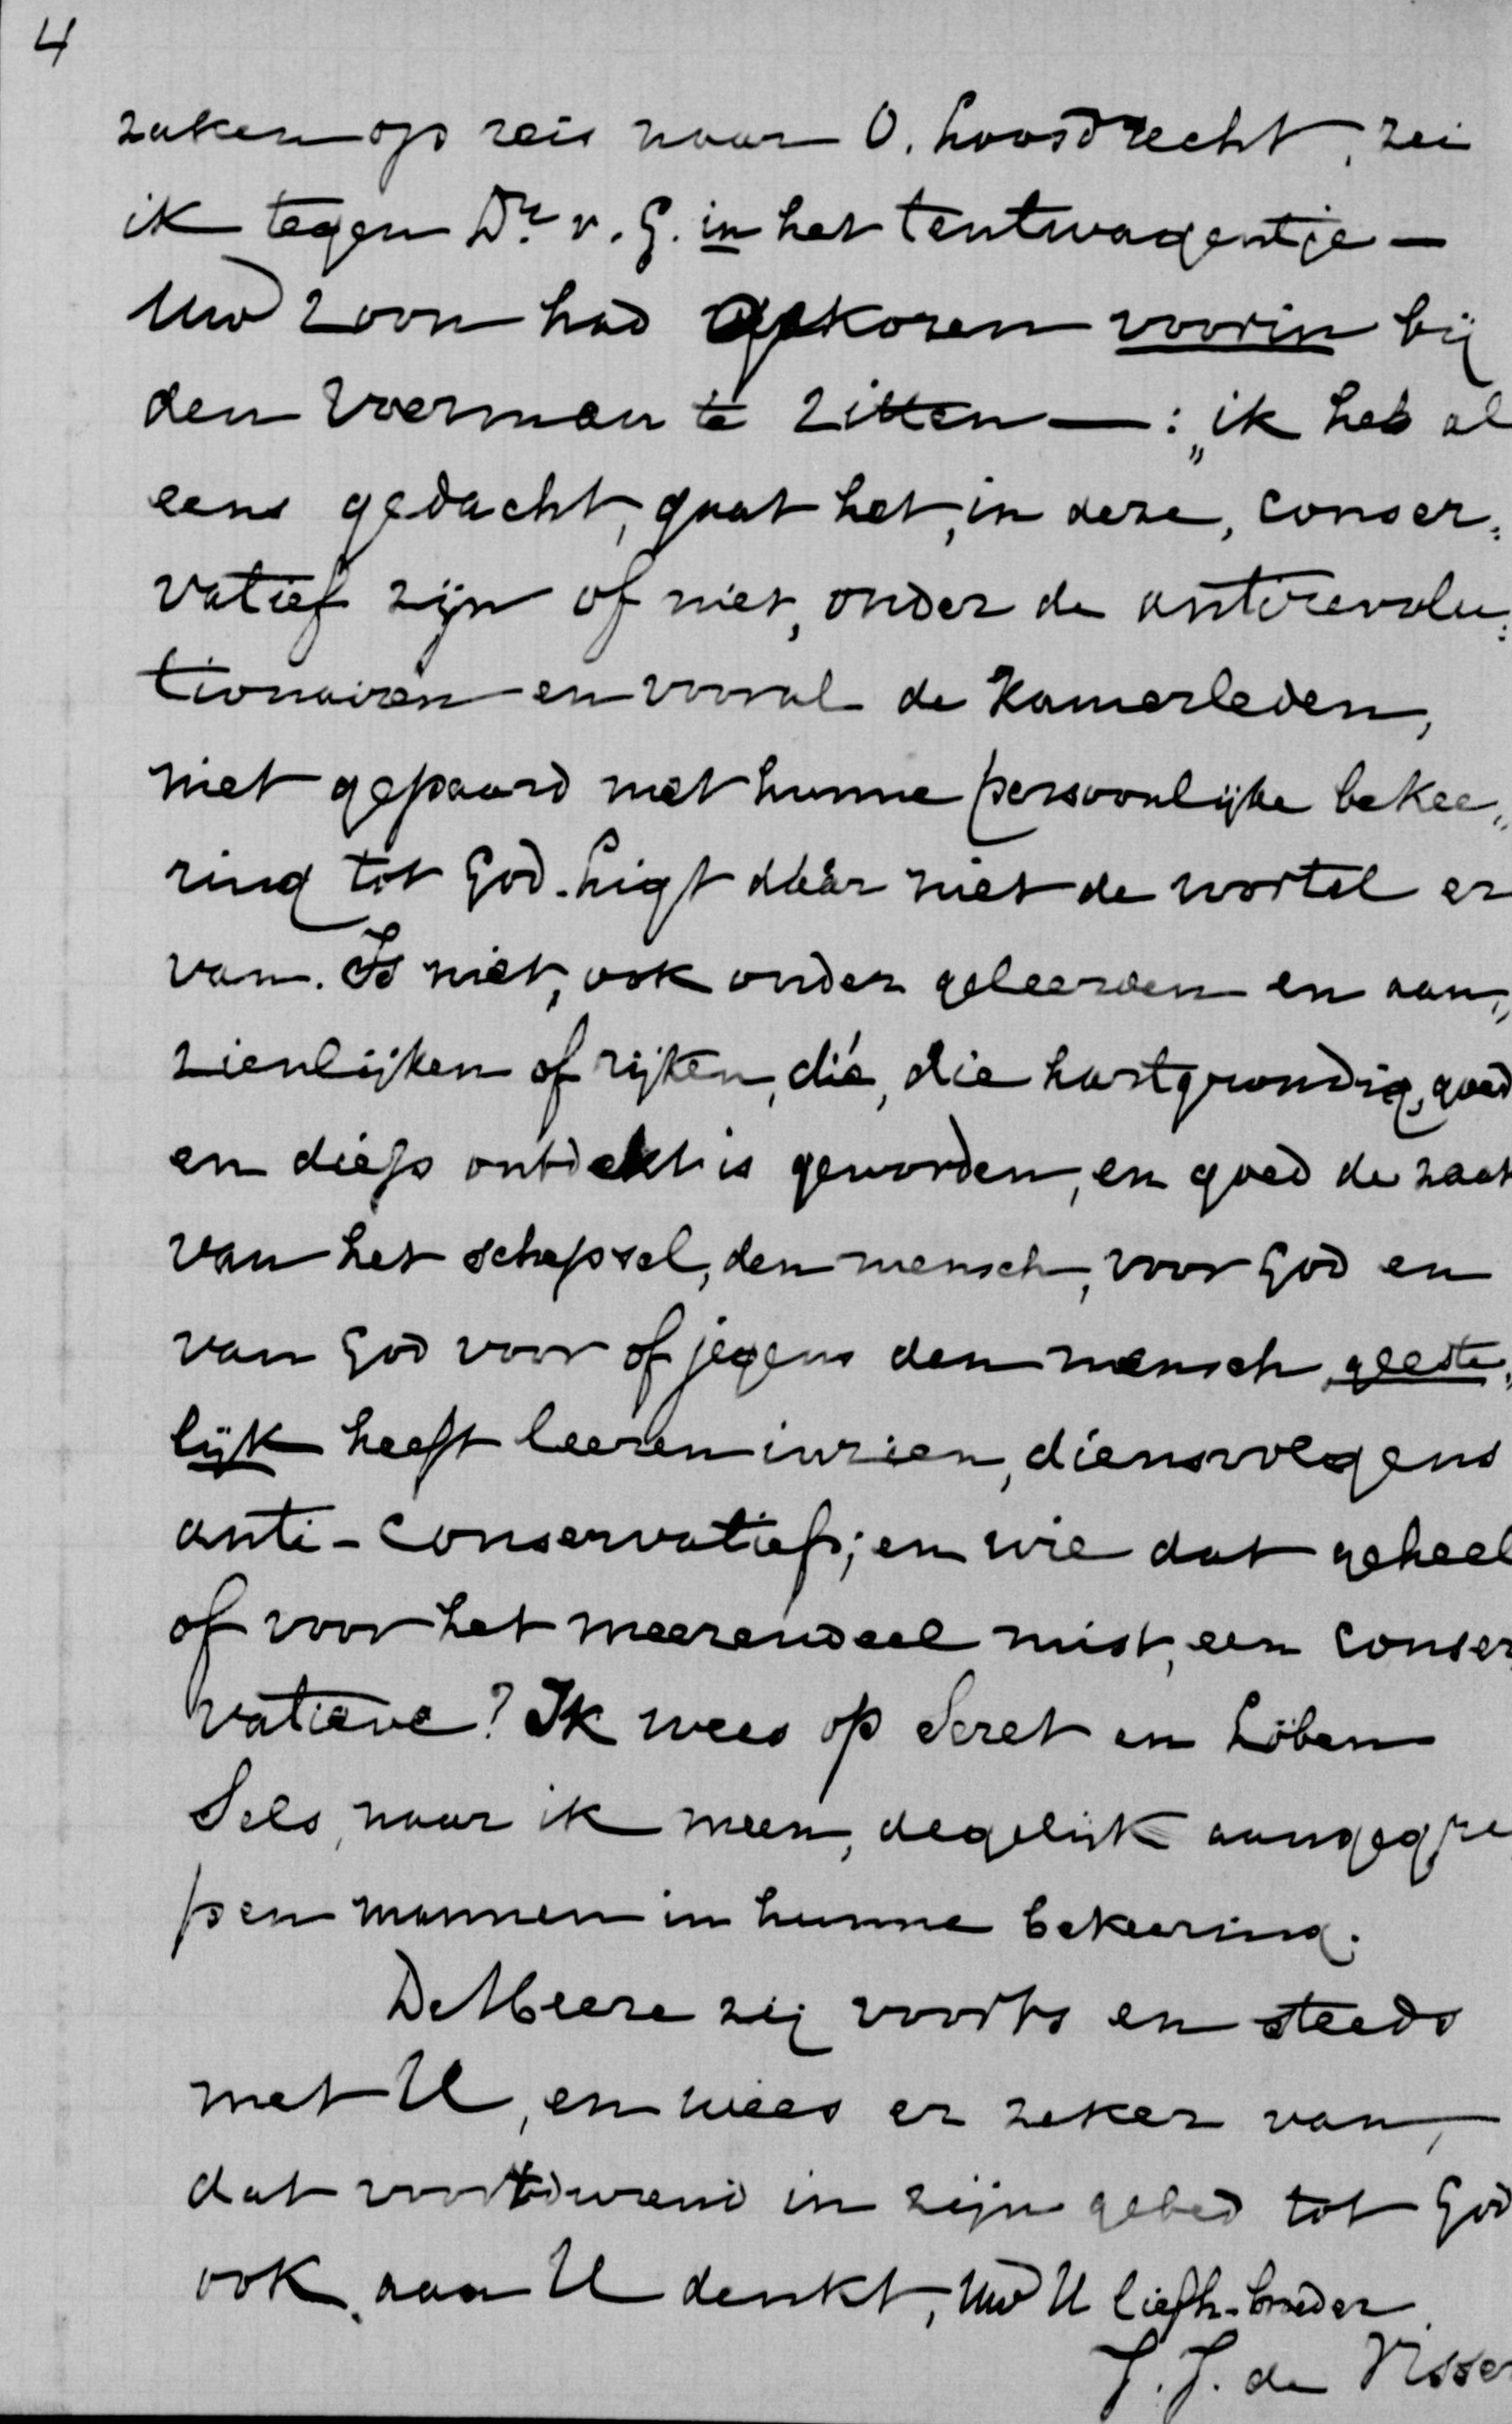 4
zaken op reis naar O. Loosdrecht, zei
ik tegen Dr. v. G. in het tentwagentje —
Uw zoon had gekozen voorin bij
den voerman te zitten — : „ik heb al
eens gedacht, gaat het, in deze, conser„
vatief zijn of niet, onder de antirevolu„
tionairen en vooral de Kamerleden,
niet gepaard met hunne persoonlijke bekee„
ring tot God. Ligt dáár niet de wortel er
van. Is niet, ook onder geleerden en aan„
zienlijken of rijken, díe, die hartgrondig, goed
en diep ontdekt is geworden, en goed de zaak
van het schepsel, den mensch, voor God en
van God voor of jegens den mensch, geeste„
lijk heeft leeren inzien, diensvolgens
anti-conservatief; en wie dat geheel
of voor het meerendeel mist, een conser
vatieve? Ik wees op Seret en Löben
Sels, naar ik meen, degelijk aangegre
pen mannen in hunne bekeering.
De Heere zij voorts en steeds
met U, en wees er zeker van,
dat voortdurend in zijn gebed tot God
ook aan U denkt, Uw U liefh. broeder
J. J. de Visser